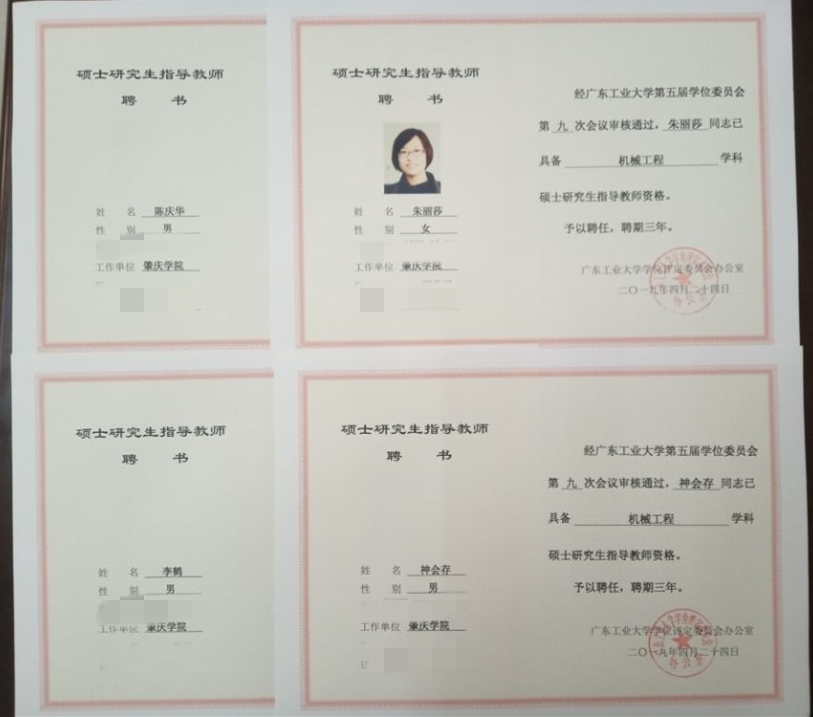 硕士研究生指导教师
聘 书
姓 名 陈庆华
性 别 男
工作单位 肇庆学院
硕士研究生指导教师
聘 书
姓 名 朱丽莎
性 别 女
工作单位 肇庆学院
经广东工业大学第五届学位委员会
第 九 次会议审核通过，朱丽莎 同志已
具备 机械工程 学科
硕士研究生指导教师资格。
予以聘任，聘期三年。
广东工业大学学位评定委员会办公室
二〇一九年四月二十四日
硕士研究生指导教师
聘 书
姓 名 李鹤
性 别 男
工作单位 肇庆学院
硕士研究生指导教师
聘 书
姓 名 神会存
性 别 男
工作单位 肇庆学院
经广东工业大学第五届学位委员会
第 九 次会议审核通过，神会存 同志已
具备 机械工程 学科
硕士研究生指导教师资格。
予以聘任，聘期三年。
广东工业大学学位评定委员会办公室
二〇一九年四月二十四日